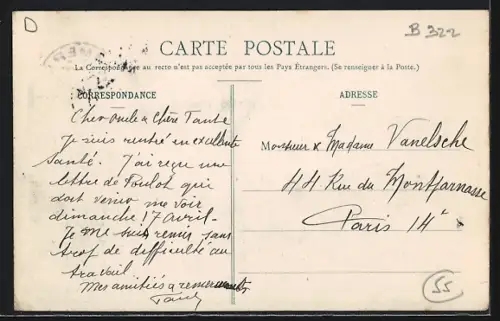 D
B 322
CARTE POSTALE
La Correspondance au recto n'est pas acceptée par tous les Pays Étrangers. (Se renseigner à la Poste.)
CORRESPONDANCE
Cher Oncle & Chère Tante
Je suis rentré en excellente
santé. J'ai reçu une
lettre de Toulot qui
doit venir me voir
dimanche 17 avril -
Je me suis remis sans
trop de difficulté au
travail
Mes amitiés & remerciements
ADRESSE
Monsieur & Madame Vanelsche
44 Rue du Montparnasse
Paris 14e
55